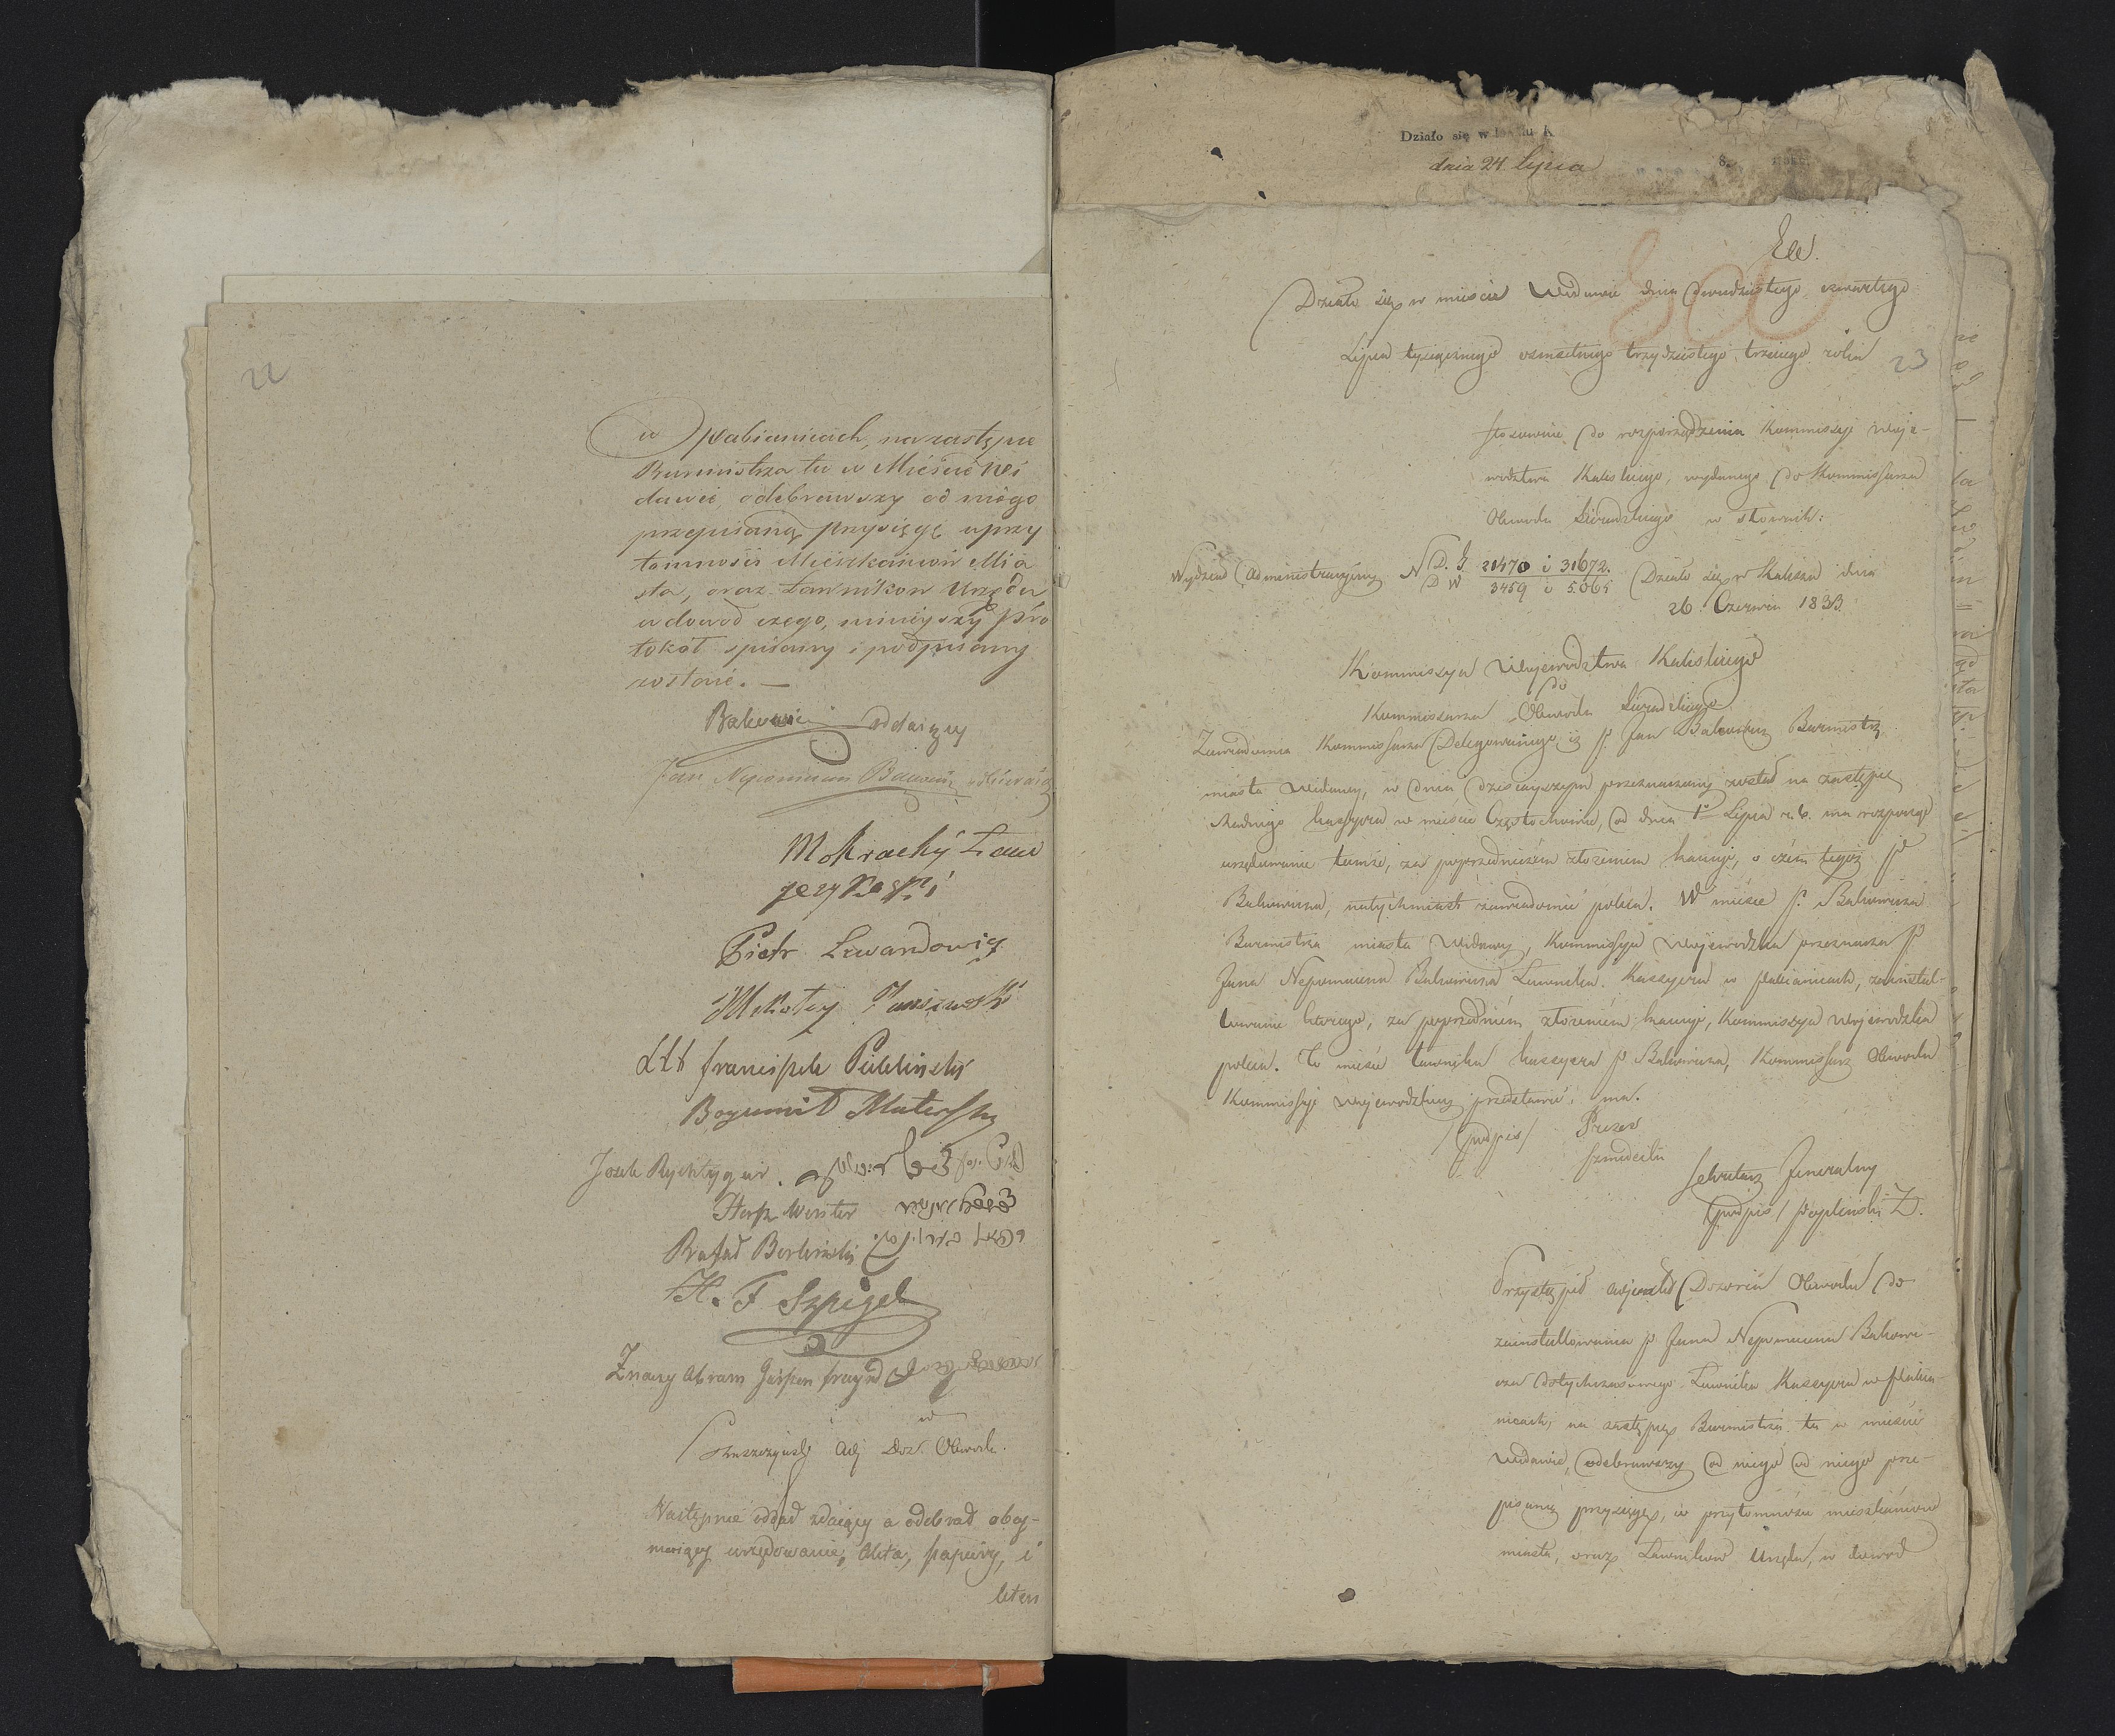 22
w Pabianicach, na zastępcę
Burmistrza tu w Mieście Wi
dawie, odebrawszy od niego
przepisaną przysięgę w przy
tomności Mieszkańców Mia
sta, oraz Ławników Urzędu
w dowód czego, niniejszy Pro
tokół spisany i podpisany
został. —
Bakowicz zdaiący
Jan Nepomucen Bakowicz odbieraiąc
Mokracki Ław
Jezykoski
Piotr Lewandowicz
Mikołay
Franciszek
Bogumił Materski
Josek Rychtyger
Hersz Winter
Rafał Berliński
H. F Szpigel
Znaczy Abram fraynd
Adj Doz. Obwodu.
Następnie oddał zdaiący a odebrał obey-
muiący urzędowanie, Akta, papiery, i
Działo się w
dnia 24 lipca
Działo się w mieście Widawie dnia dwudziestego czwartego
Lipca tysiącznego osmsetnego trzydziestego trzeciego roku
23
Stosownie do rozporządzenia Kommissyi Woje-
wództwa Kaliskiego, wydanego do Kommissarza
Obwodu Sieradzkiego w słowach:
Wydział Administracyiny N D. J. 21470 i 31672.
D W 3459 i 5065
Działo się w Kaliszu dnia
26 Czerwca 1833
Kommissya Województwa Kaliskiego
do
Kommissarza Obwodu Sieradzkiego
Zawiadomia Kommissarza Delegowanego iż P. Jan Bakowicz Burmistrz
miasta Widawy, w dniu dzisieyszym przeznaczony został na zastępcę
Radnego Kassyera w mieście Częstochowie, od dnia 1 Lipca r. b. ma rozpocząć
urzędowanie tamże, za poprzedniczem złożeniem kaucyi, o czém tegoż P
Bakowicza, natychmiast zawiadomić poleca. W mieysce P. Bakowicza
Burmistrza miasta Widawy, Kommissya Wojewódzka przeznacza P
Jana Nepomucena Bakowicza Ławnika Kassyera w Pabianicach, zainstal-
lowanie którego, za poprzedniém złożeniem kaucyi, Kommissya Wojewódzka
poleca. Na mieysce Ławnika Kassyera P Bakowicza, Kommissarz Obwodu
Kommissyi Wojewódzkiey przedstawić ma.
/podpis/ Prezes
Szmidecki
Sekretarz Jeneralny
/podpis/
Przystąpił Adjunkt Dozorcy Obwodu do
zainstallowania P Jana Nepomucena Bakowi-
cza dotychczasowego Ławnika Kassyera w Pabia-
nicach, na zastępcę Burmistrza tu w mieście
Widawie, odebrawszy od niego od niego prze-
pisaną przysięgę, w przytomności mieszkańców
miasta, oraz Ławników Urzędu, w dowód